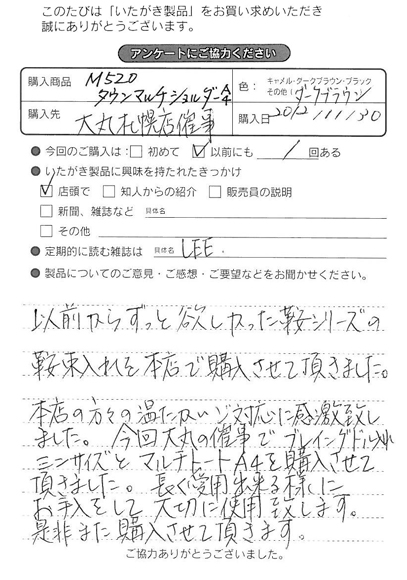 このたびは「いたがき製品」をお買い求めいただき
誠にありがとうございます。
アンケートにご協力ください
購入商品 M520 タウンマルチショルダーA4
色： キャメル・ダークブラウン・ブラック
その他（ダークブラウン
購入先 大丸札幌店催事
購入日 2012/11/30
● 今回のご購入は：□ 初めて ☑ 以前にも 1 回ある
● いたがき製品に興味を持たれたきっかけ
☑ 店頭で □ 知人からの紹介 □ 販売員の説明
□ 新聞、雑誌など 具体名
□ その他
● 定期的に読む雑誌は 具体名 LEE.
● 製品についてのご意見・ご感想・ご要望などをお聞かせください。
以前からずっと欲しかった鞍シリーズの
鞍束入れを本店で購入させて頂きました。
本店の方々の温たかいご対応に感激致し
ました。 今回大丸の催事で ブレイングドル入れ
ミニサイズと マルチトートA4を購入させて
頂きました。 長く愛用出来る様に
お手入をして 大切に使用致します。
是非また購入させて頂きます。
ご協力ありがとうございました。